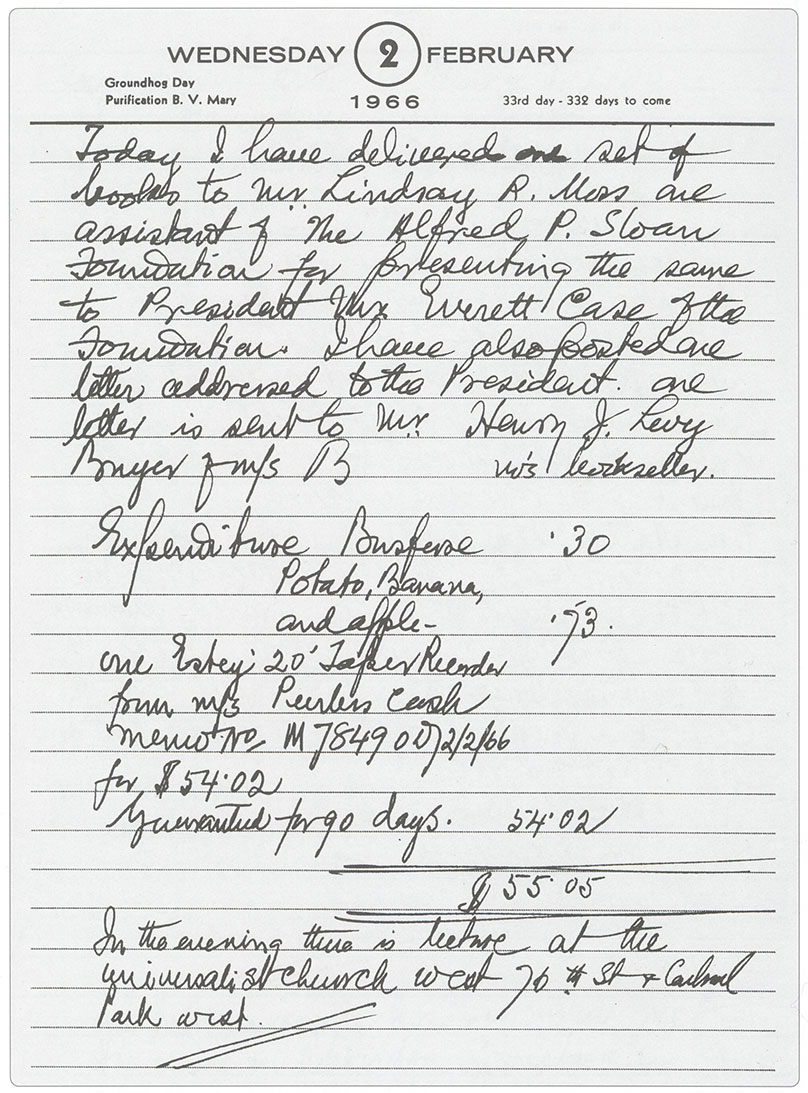 WEDNESDAY 2 FEBRUARY
Groundhog Day
Purification B. V. Mary
1966
33rd day - 332 days to come
Today I have delivered one set of
books to Mr. Lindsay R. Moss one
assistant of The Alfred P. Sloan
Foundation for presenting the same
to President Mr Everett Case of the
Foundation. I have also posted one
letter addressed to the President. one
letter is sent to Mr. Henry J. Levy
Buyer of m/s B bookseller.
Expenditure Busfere ·30
Potato, Banana,
and apple- ·73.
one Estey 20' Taper Recorder
from m/s Peerless Cash
memo No M 7849 OD/2/2/66
for $54·02
Guaranteed for 90 days. 54·02
$ 55·05
In the evening there is lecture at the
Universalist church west 76 th St & Central
Park west.